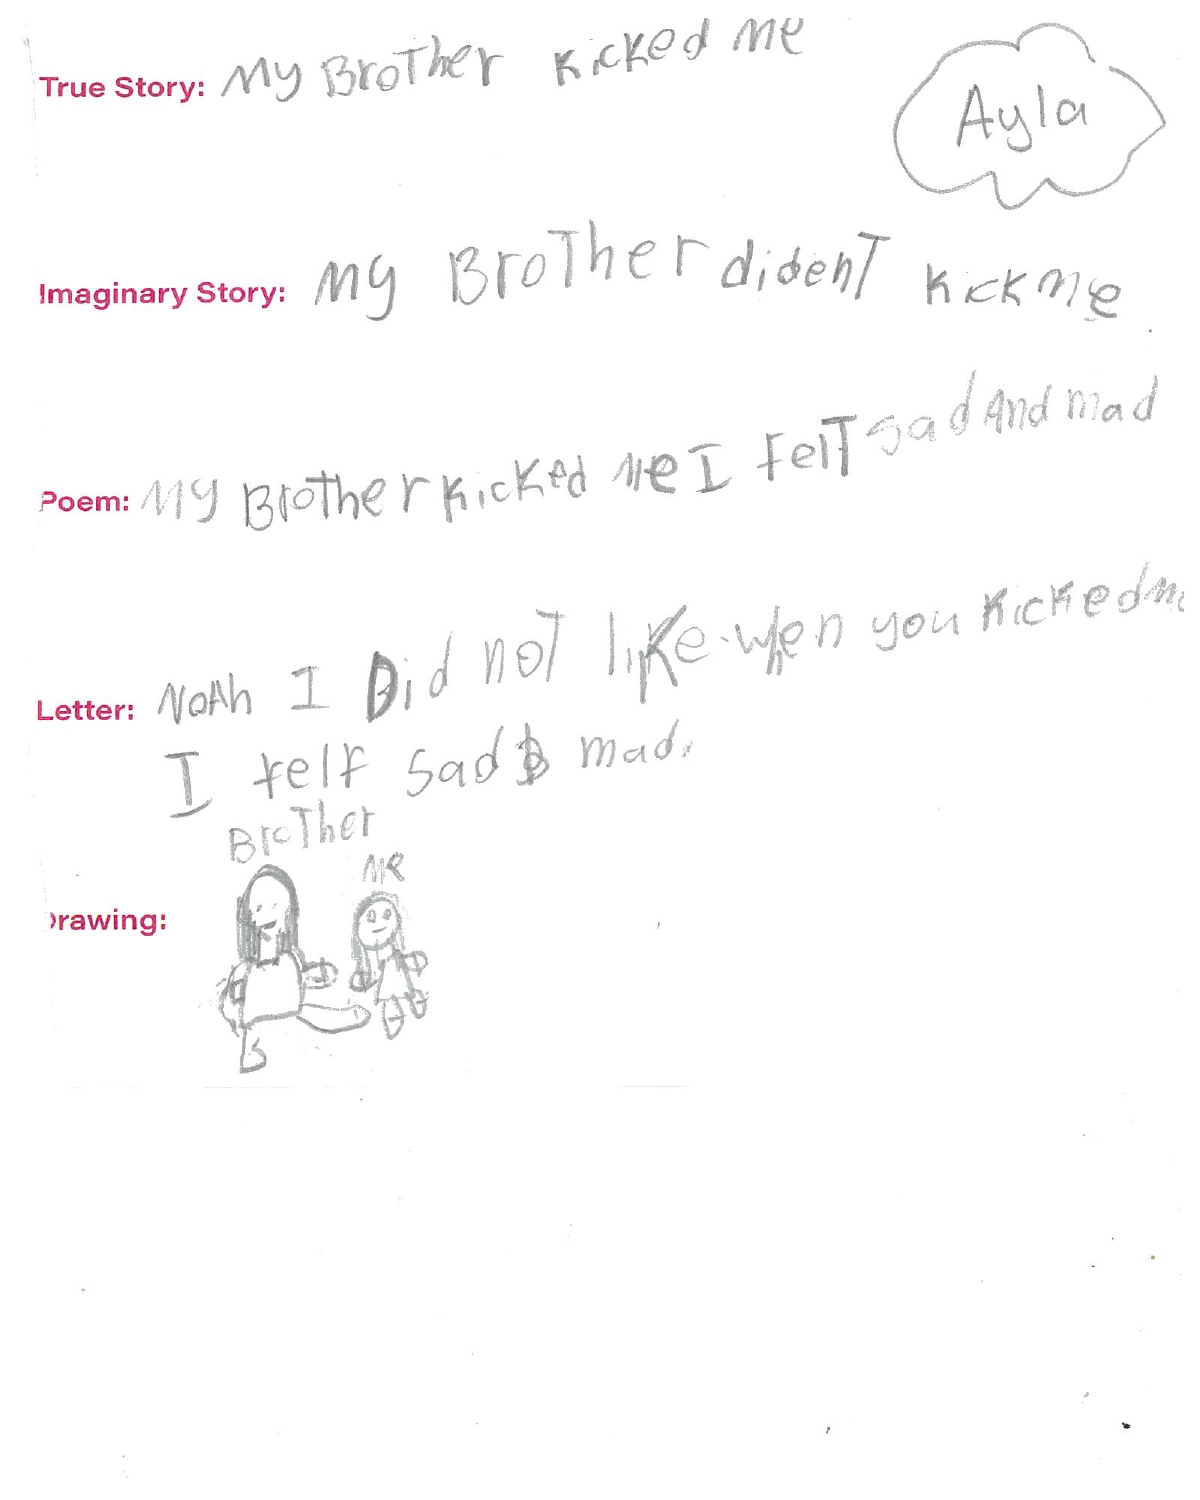 True Story: My BroTher kicked Me
Ayla
Imaginary Story: My BroTher didenT kick me
Poem: My Brother kicked Me I felT sad And mad
Letter: NoAh I Did noT like when you kicked me
I felt sad & mad.
BroTher
Me
Drawing: